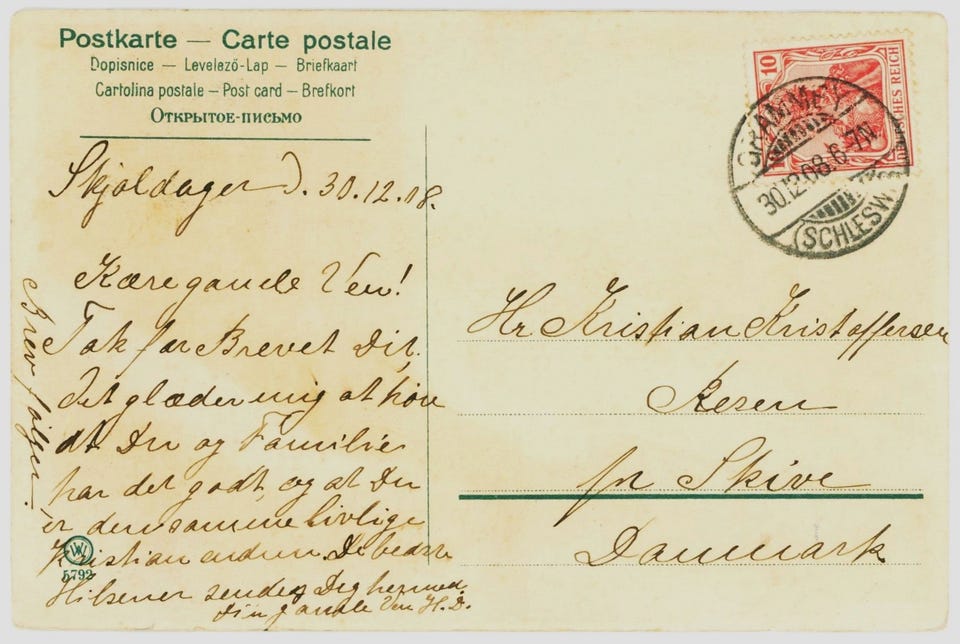 Postkarte — Carte postale
Dopisnice — Levelező-Lap — Briefkaart
Cartolina postale — Post card — Brefkort
Открытое-письмо
Skjoldager D. 30.12.08.
Kære gamle Ven!
Tak for Brevet Dit,
det glæder mig at høre
at Du og Familie
har det godt, og at Du
er den samme livlige
Kristian endnu. De bedste
Hilsener sendes Dig hermed
Din gamle Ven H.D.
Brev følger.
W
5792
10
DEUTSCHES REICH
GRAMM
30.12.08.6-7N
(SCHLESW.)
Hr Kristian Kristoffersen
Resen
pr Skive
Danmark